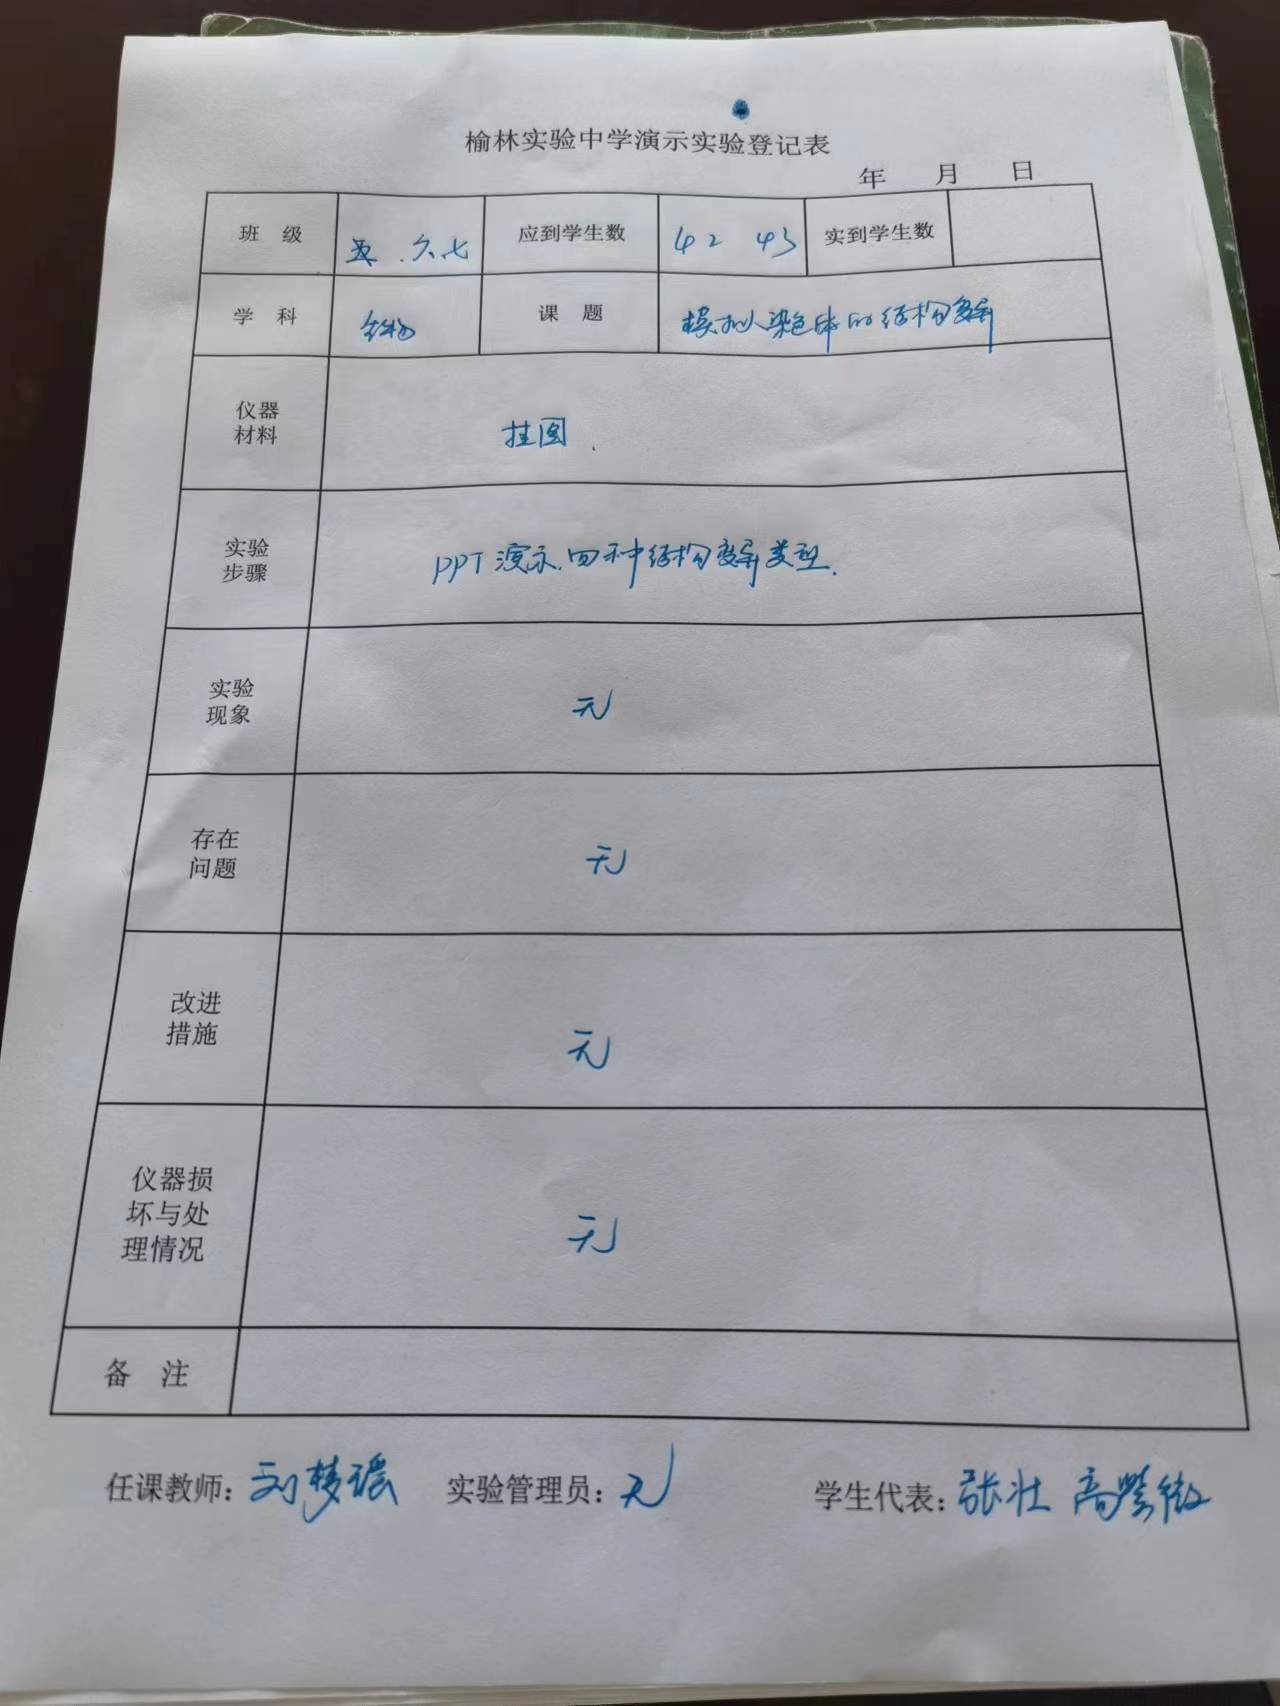 榆林实验中学演示实验登记表
年 月 日
班 级 六七 应到学生数 42 43 实到学生数
学 科 生物 课 题 模拟染色体的结构变异
仪器
材料
挂图.
实验
步骤
PPT演示.四种结构变异类型.
实验
现象
无
存在
问题
无
改进
措施
无
仪器损
坏与处
理情况
无
备 注
任课教师: 刘梦瑶 实验管理员: 无 学生代表: 张壮 高